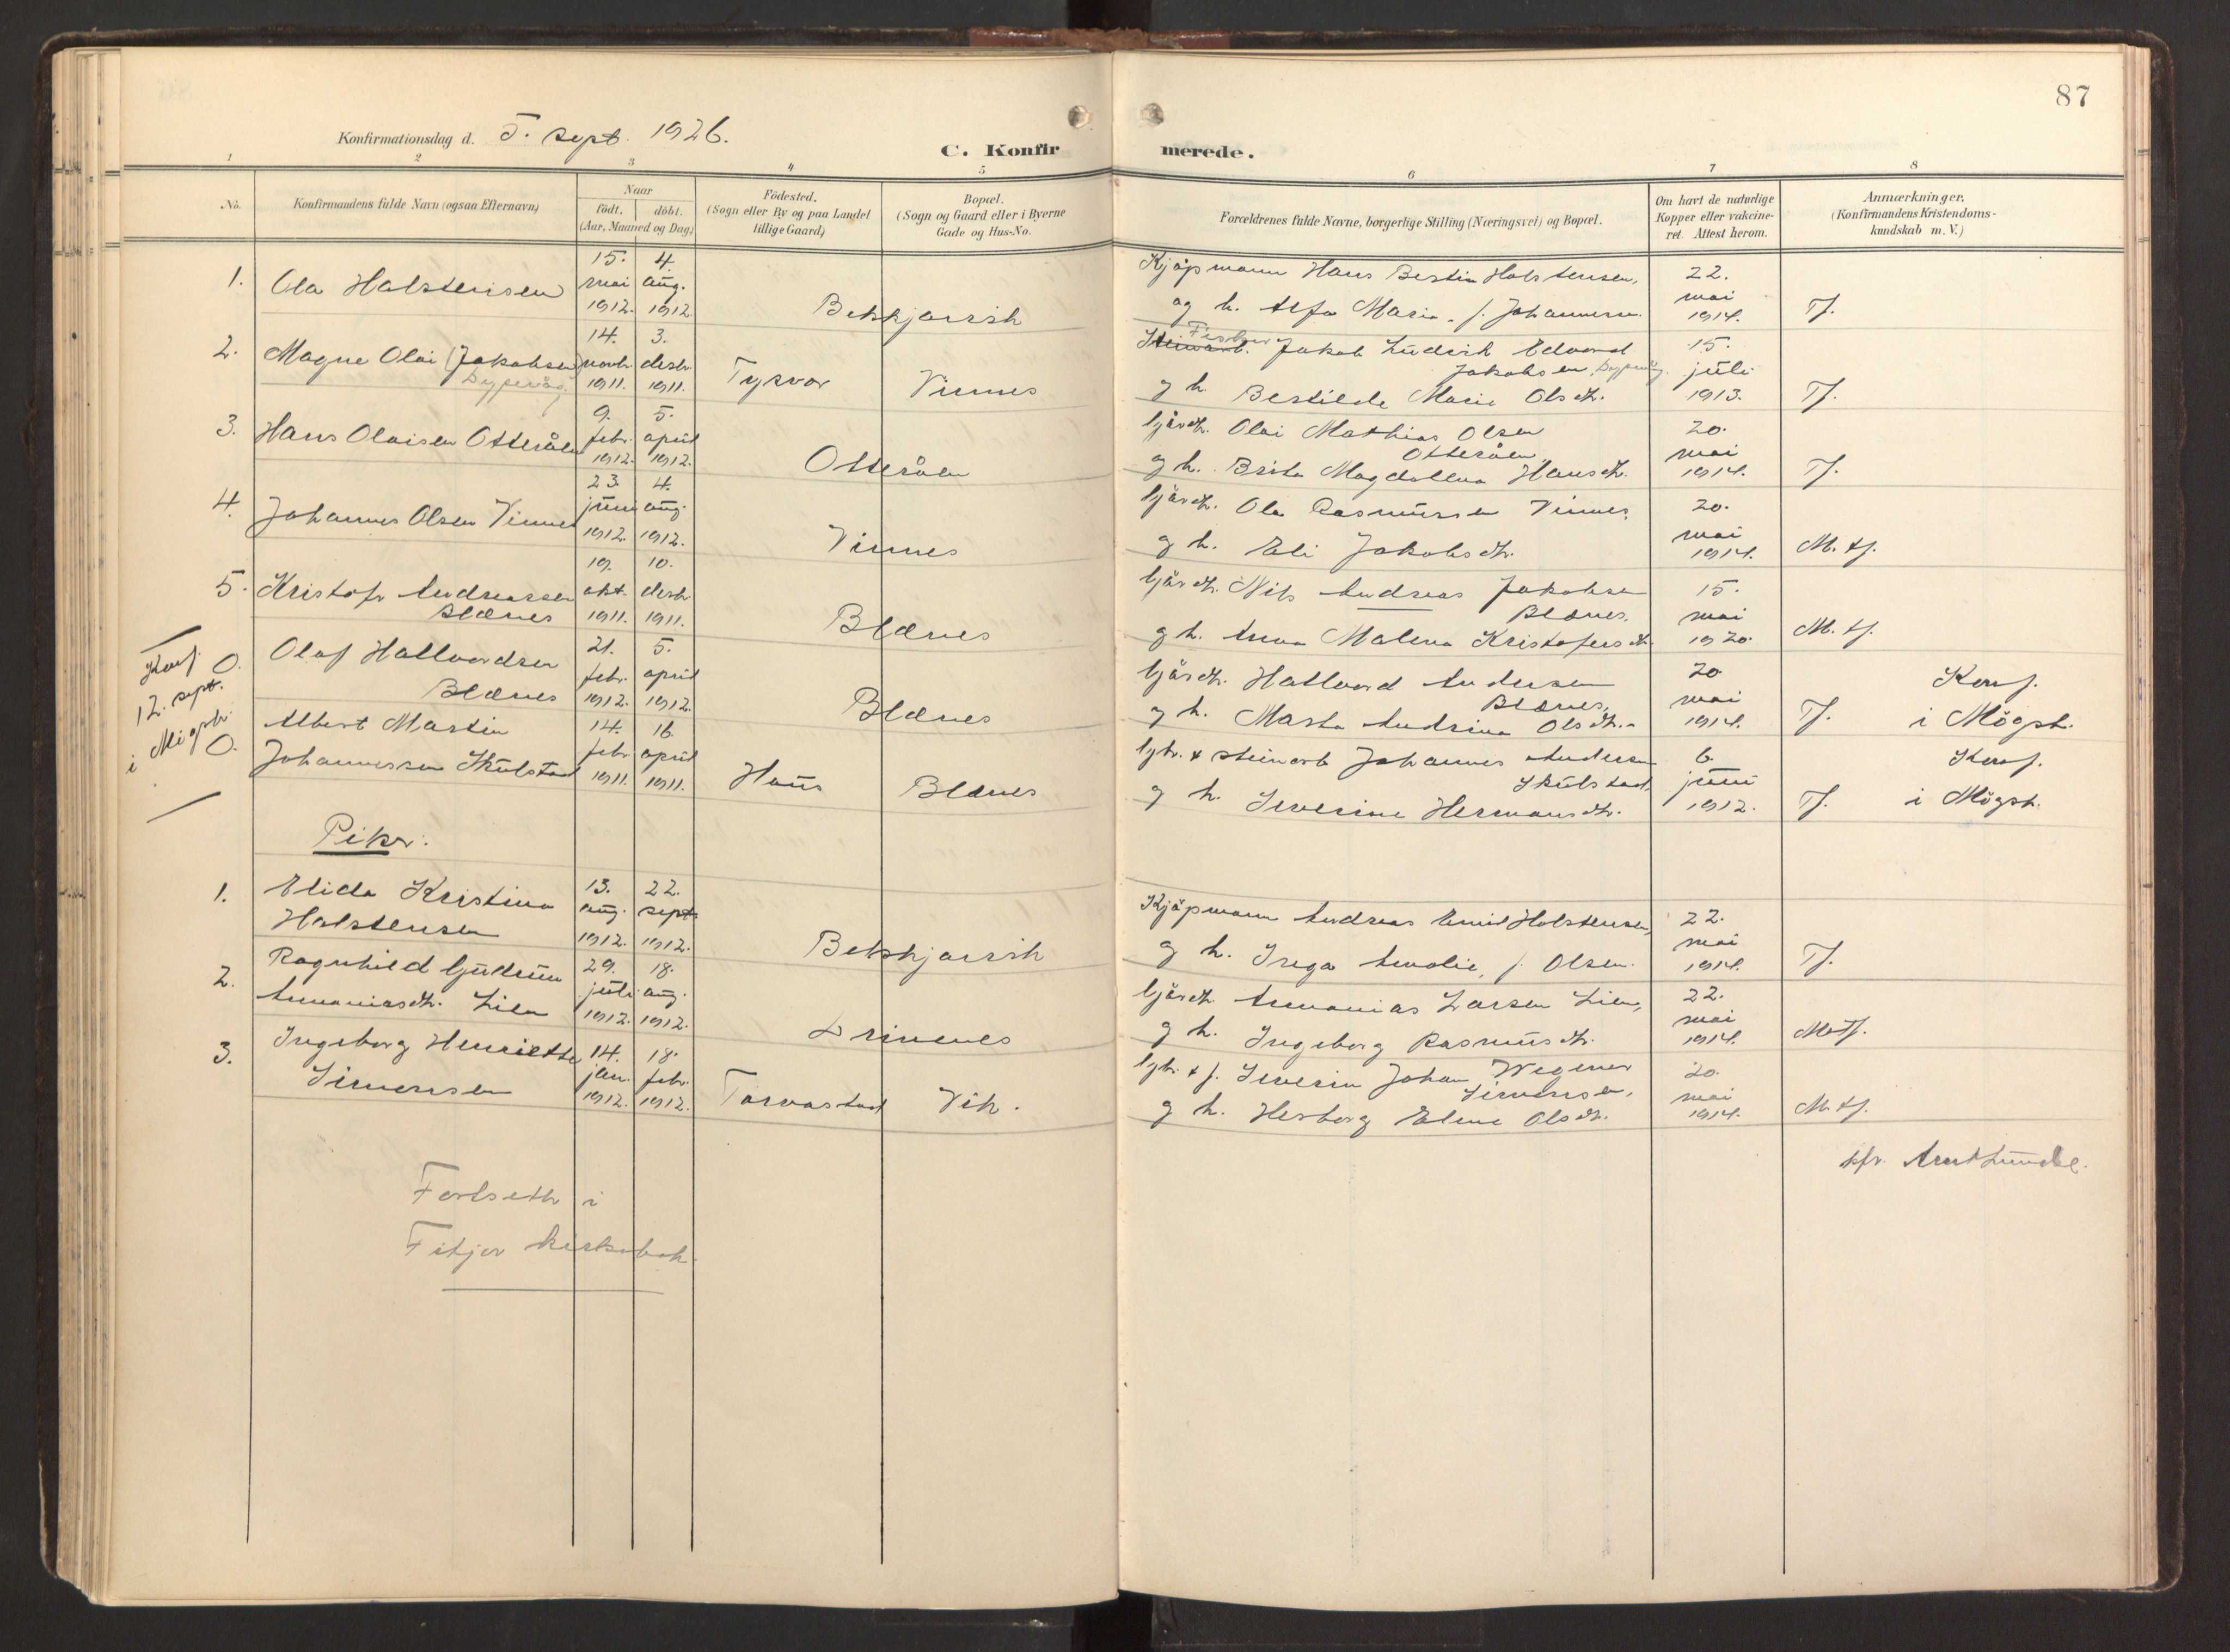 87
Konfirmationsdag d. 5. sept. 1926.
C. Konfirmerede.
1 2 3 4 5 6 7 8
No.
Konfirmandens fulde Navn (ogsaa Efternavn)
Naar
födt. döbt.
(Aar, Maaned og Dag)
Födested.
(Sogn eller By og paa Landet
tillige Gaard)
Bopæl.
(Sogn og Gaard eller i Byerne
Gade og Hus-No.
Forældrenes fulde Navne, borgerlige Stilling (Næringsvei) og Bopæl.
Om havt de naturlige
Kopper eller vakcine-
ret. Attest herom.
Anmærkninger,
(Konfirmandens Kristendoms-
kundskab m. V.)
1. Ola Halstensen
15. mai 1912. 4. aug. 1912
Bekkjarvik
Kjöpmann Hans Bertin Halstensen,
og h. Alfa Maria, f. Johannesen.
22. mai 1914. Tf.
2. Magne Olai (Jakobsen)
Dyppevåg
14. novbr. 1911. 3. desbr. 1911.
Tysvær Vinnes
Steinarb. Fisker Jakob Ludvik Edvard
Jakobsen, Dyppevåg.
g h. Bertilde Marie Olsdtr.
15. juli 1913. Tf.
3. Hans Olaisen Otteråen
9. febr. 1912. 5. april 1912.
Otteråen
Gårdbr. Olai Mathias Olsen
Otteråen,
g h. Brita Magdalena Hansdtr.
20. mai 1914. Tf.
4. Johannes Olsen Vinnes
23. juni 1912. 4. aug. 1912.
Vinnes
Gårdbr. Ola Rasmussen Vinnes,
g h. Eli Jakobsdtr.
20. mai 1914. M. tf.
5. Kristofer Andreassen
Blænes
19. okt. 1911. 10. desbr. 1911.
Blænes
Gårdbr. Nils Andreas Jakobsen
Blænes,
g h. Anna Malena Kristofersdtr.
15. mai 1920. M. tf.
Konf.
12. sept.
i Mögstr.
0. Olaf Hallvardsen
Blænes
21. febr. 1912. 5. april 1912.
Blænes
Gårdbr. Hallvard Andersen
Blænes,
g h. Marta Andrina Olsdtr.
20 mai 1914. Tf. Konf.
i Mögstr.
0. Albert Martin
Johannessen Skulstad
14. febr. 1911. 16. april 1911.
Haus Blænes
Gbr. & steinarb Johannes Andersen
Skulstad,
g h. Severine Hermansdtr.
6. juni 1912. Tf. Konf.
i Mögstr.
Piker:
1. Elida Kristina
Halstensen
13. aug. 1912. 22. sept. 1912.
Bekkjarvik
Kjöpmann Andreas Emil Halstensen,
g h. Inga Amalie, f. Olsen.
22. mai 1914. Tf.
2. Ragnhild Gudrun
Ananiasdtr. Lien
29. juli 1912. 18. aug. 1912.
Drivenes
Gårdbr. Ananias Larsen Lien,
g h. Ingeborg Rasmusdtr.
22. mai 1914. Mtf.
3. Ingeborg Henriette
Simensen
14. jan. 1912. 18. febr. 1912.
Torvastad Vik.
Gbr. & f. Severin Johan Wegener
Simensen,
g h. Herborg Elene Olsdtr.
20. mai 1914. M. tf.
kfr. Arnt Lunde.
Fortseth i
Fitjar kirkebok.